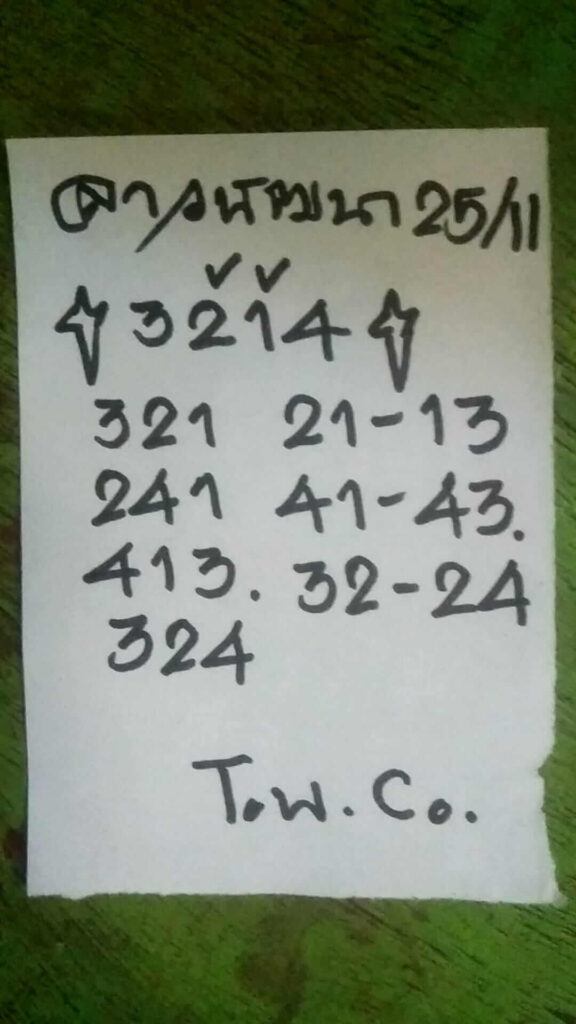 ลาวพัฒนา 25/11
3214
321 21-13
241 41-43.
413. 32-24
324
T.w. Co.